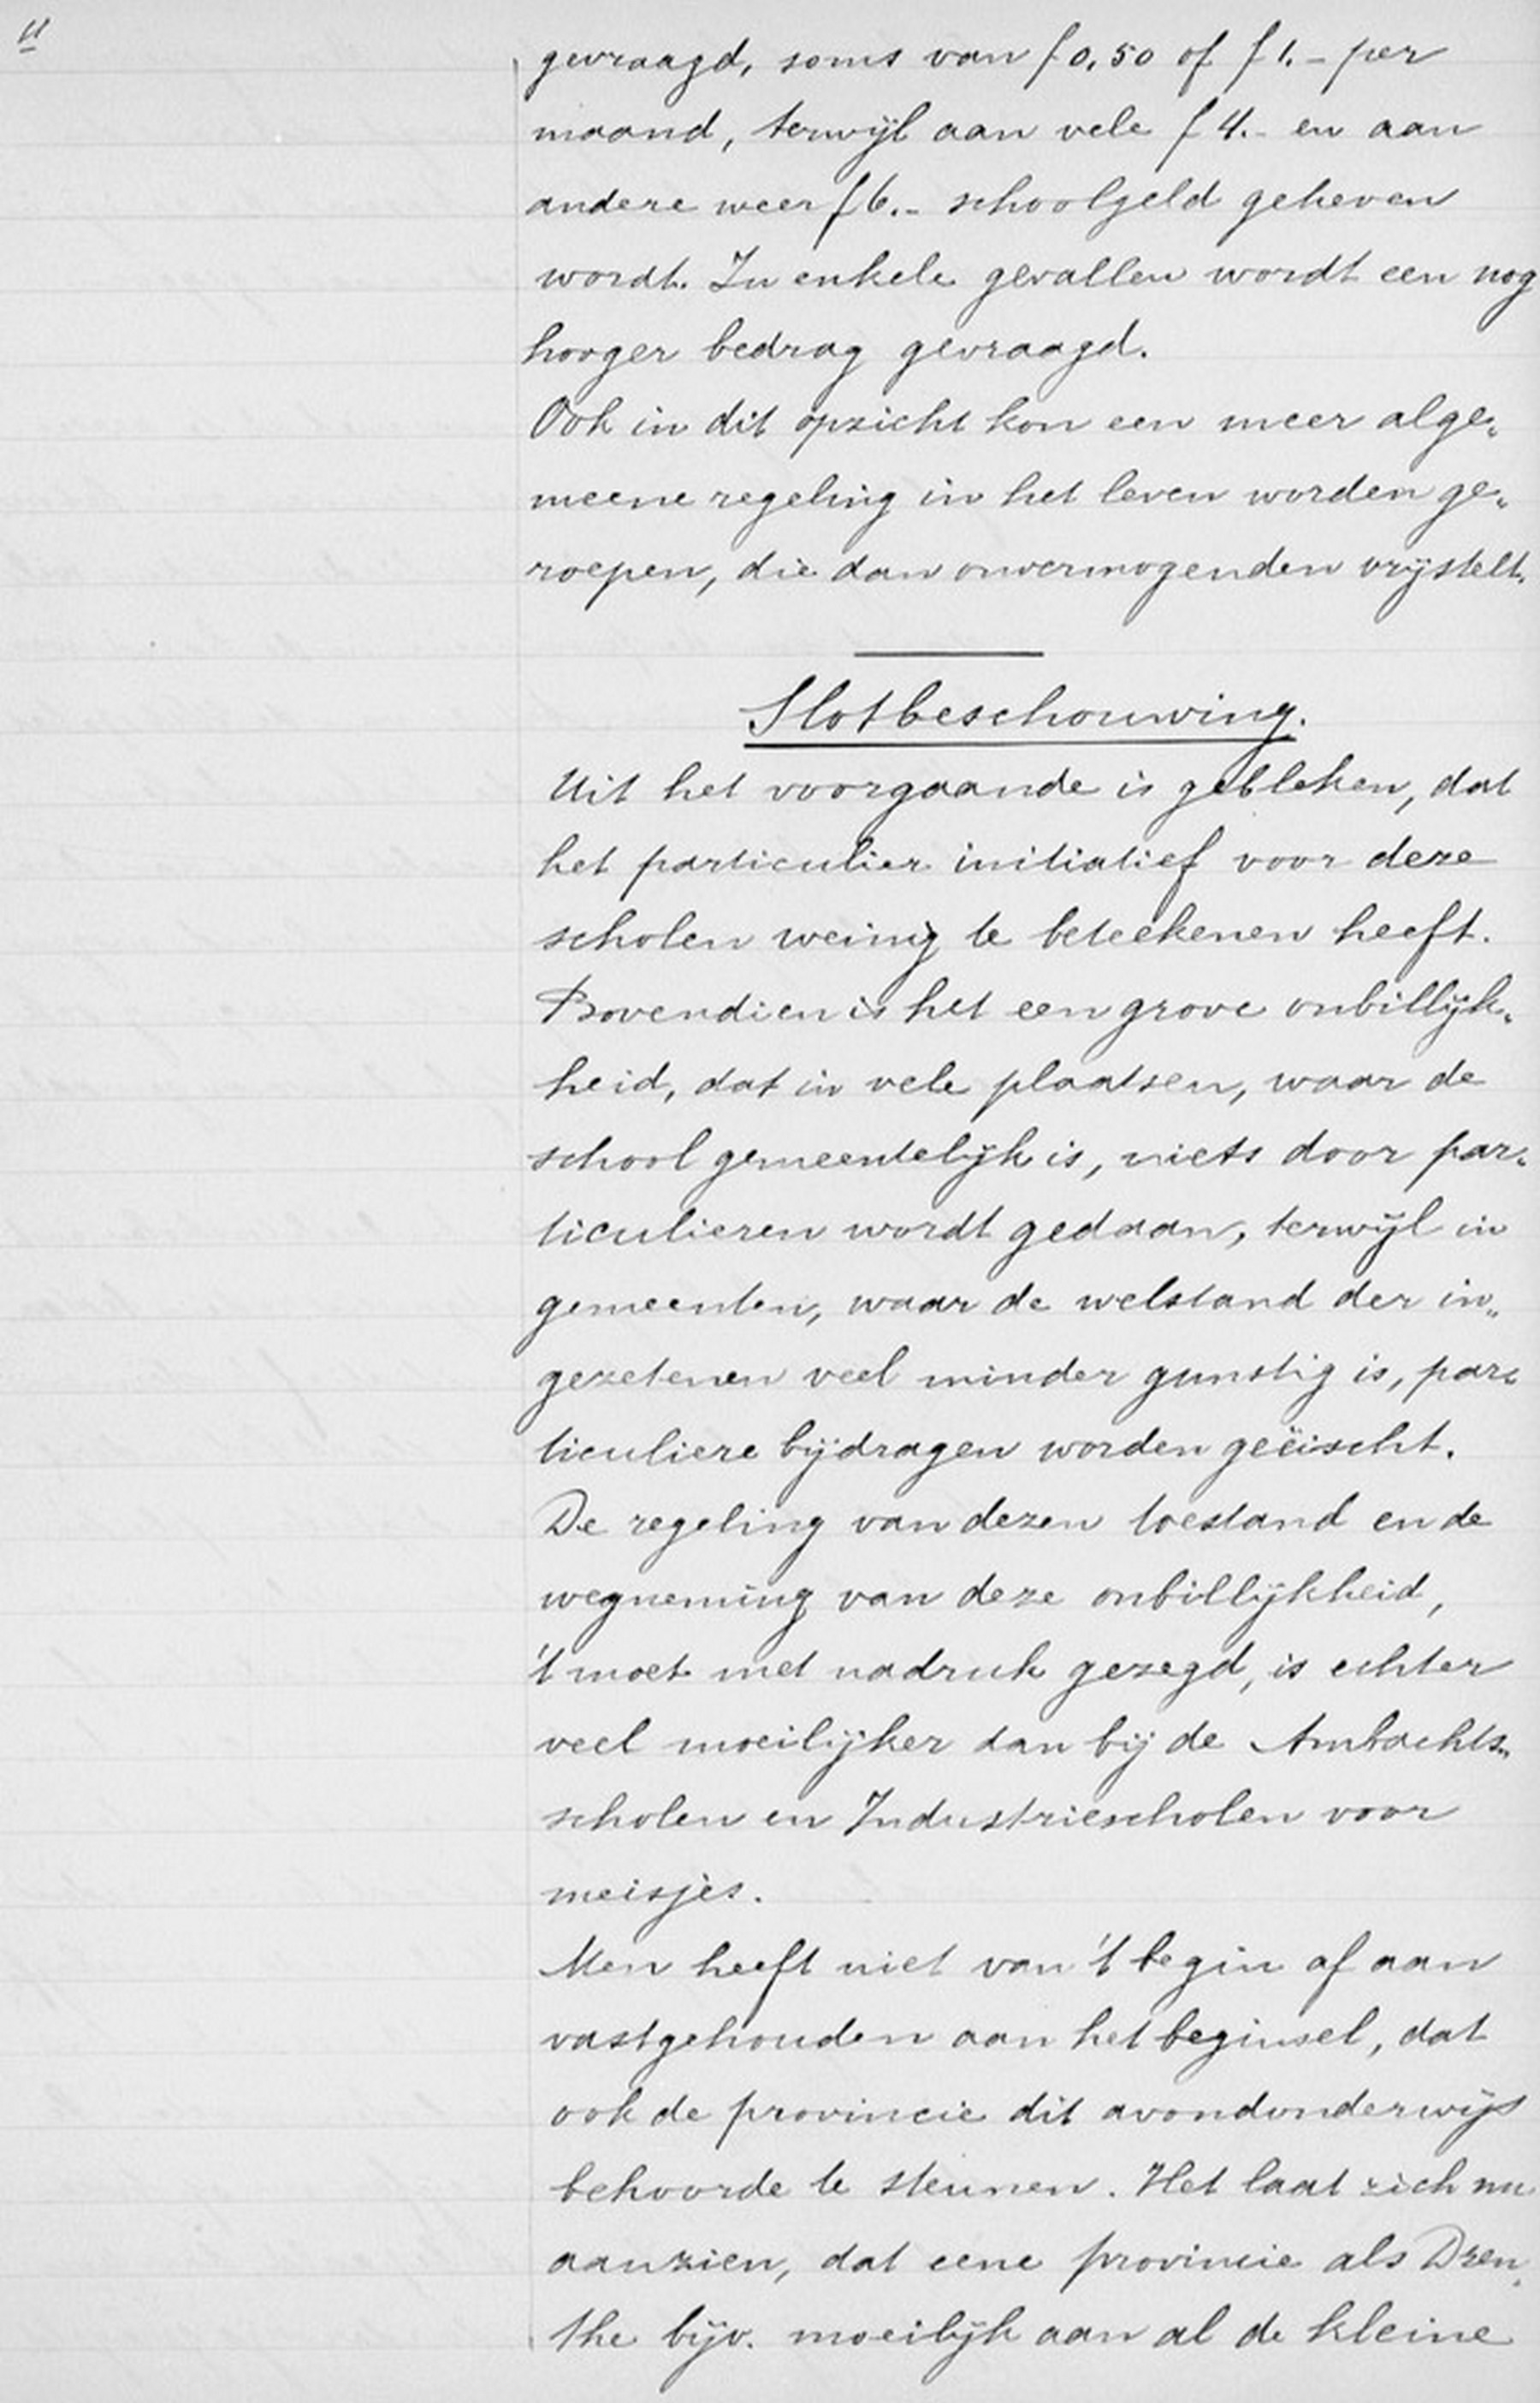 11
gevraagd, soms van f 0,50 of f 1.- per
maand, terwijl aan vele f 4.- en aan
andere weer f 6.- schoolgeld geheven
wordt. In enkele gevallen wordt een nog
hooger bedrag gevraagd.
Ook in dit opzicht kon een meer alge„
meene regeling in het leven worden ge„
roepen, die dan onvermogenden vrijstelt.
Slotbeschouwing.
Uit het voorgaande is gebleken, dat
het particulier initiatief voor deze
scholen weinig te beteekenen heeft.
Bovendien is het een grove onbillijk„
heid, dat in vele plaatsen, waar de
school gemeentelijk is, niets door par„
ticulieren wordt gedaan, terwijl in
gemeenten, waar de welstand der in„
gezetenen veel minder gunstig is, par„
ticuliere bijdragen worden geëischt.
De regeling van dezen toestand en de
wegneming van deze onbillijkheid,
't moet met nadruk gezegd, is echter
veel moeilijker dan bij de Ambachts„
scholen en Industriescholen voor
meisjes.
Men heeft niet van 't begin af aan
vastgehouden aan het beginsel, dat
ook de provincie dit avondonderwijs
behoorde te steunen. Het laat zich nu
aanzien, dat eene provincie als Dren„
the bijv. moeilijk aan al de kleine